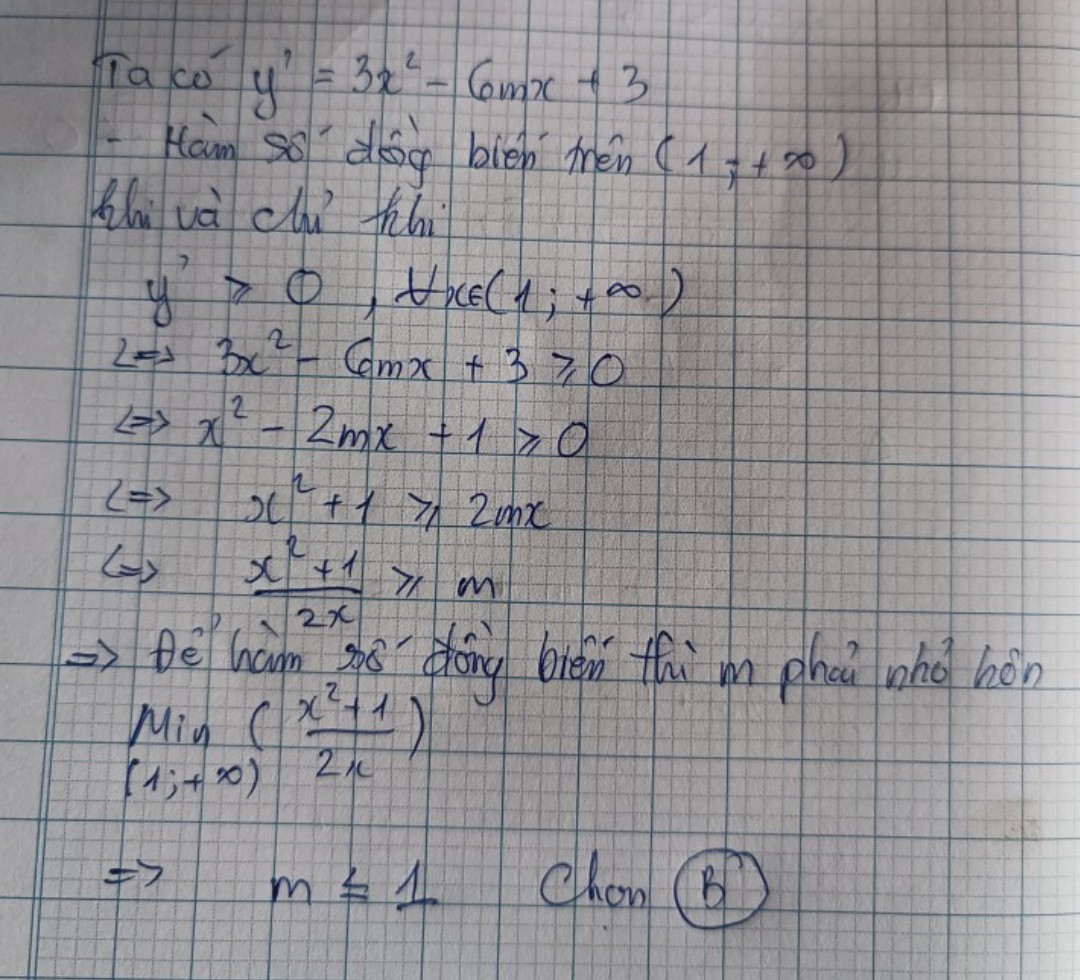 Ta có y' = 3x² - 6mx + 3
- Hàm số đồng biến trên (1 ; + ∞)
khi và chỉ khi
y' ≥ 0 , ∀x∈(1 ; +∞)
<=> 3x² - 6mx + 3 ≥ 0
<=> x² - 2mx + 1 ≥ 0
<=> x² + 1 ≥ 2mx
<=> (x² + 1)/(2x) ≥ m
=> Để hàm số đồng biến thì m phải nhỏ hơn
Min ((x² + 1)/(2x))
(1;+∞)
=> m ≤ 1 Chọn B